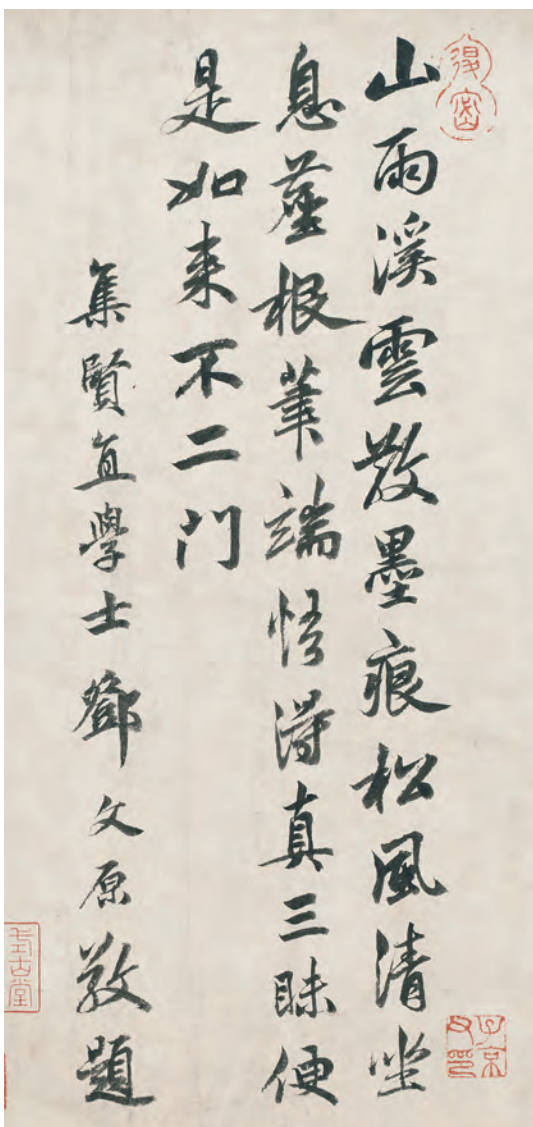 山雨溪雲散墨痕松風清坐
息塵根筆端悟得真三昧便
是如来不二門
集賢直學士鄧文原敬題
子京
父印
式古堂